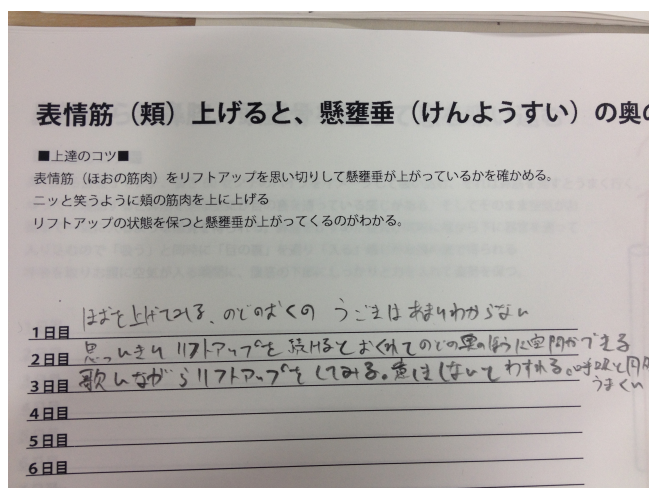 表情筋（頬）上げると、懸壅垂（けんようすい）の奥の
■上達のコツ■
表情筋（ほおの筋肉）をリフトアップを思い切りして懸壅垂が上がっているかを確かめる。
ニッと笑うように頬の筋肉を上に上げる
リフトアップの状態を保つと懸壅垂が上がってくるのがわかる。
1日目 ほおを上げてみる、のどのおくの うごきはあまりわからない
2日目 思いっきりリフトアップを続けるとおくれてのどの奥のほうに空間ができる
3日目 歌いながらリフトアップをしてみる。意しきしないとわすれる。呼吸と同
うまくい
4日目
5日目
6日目